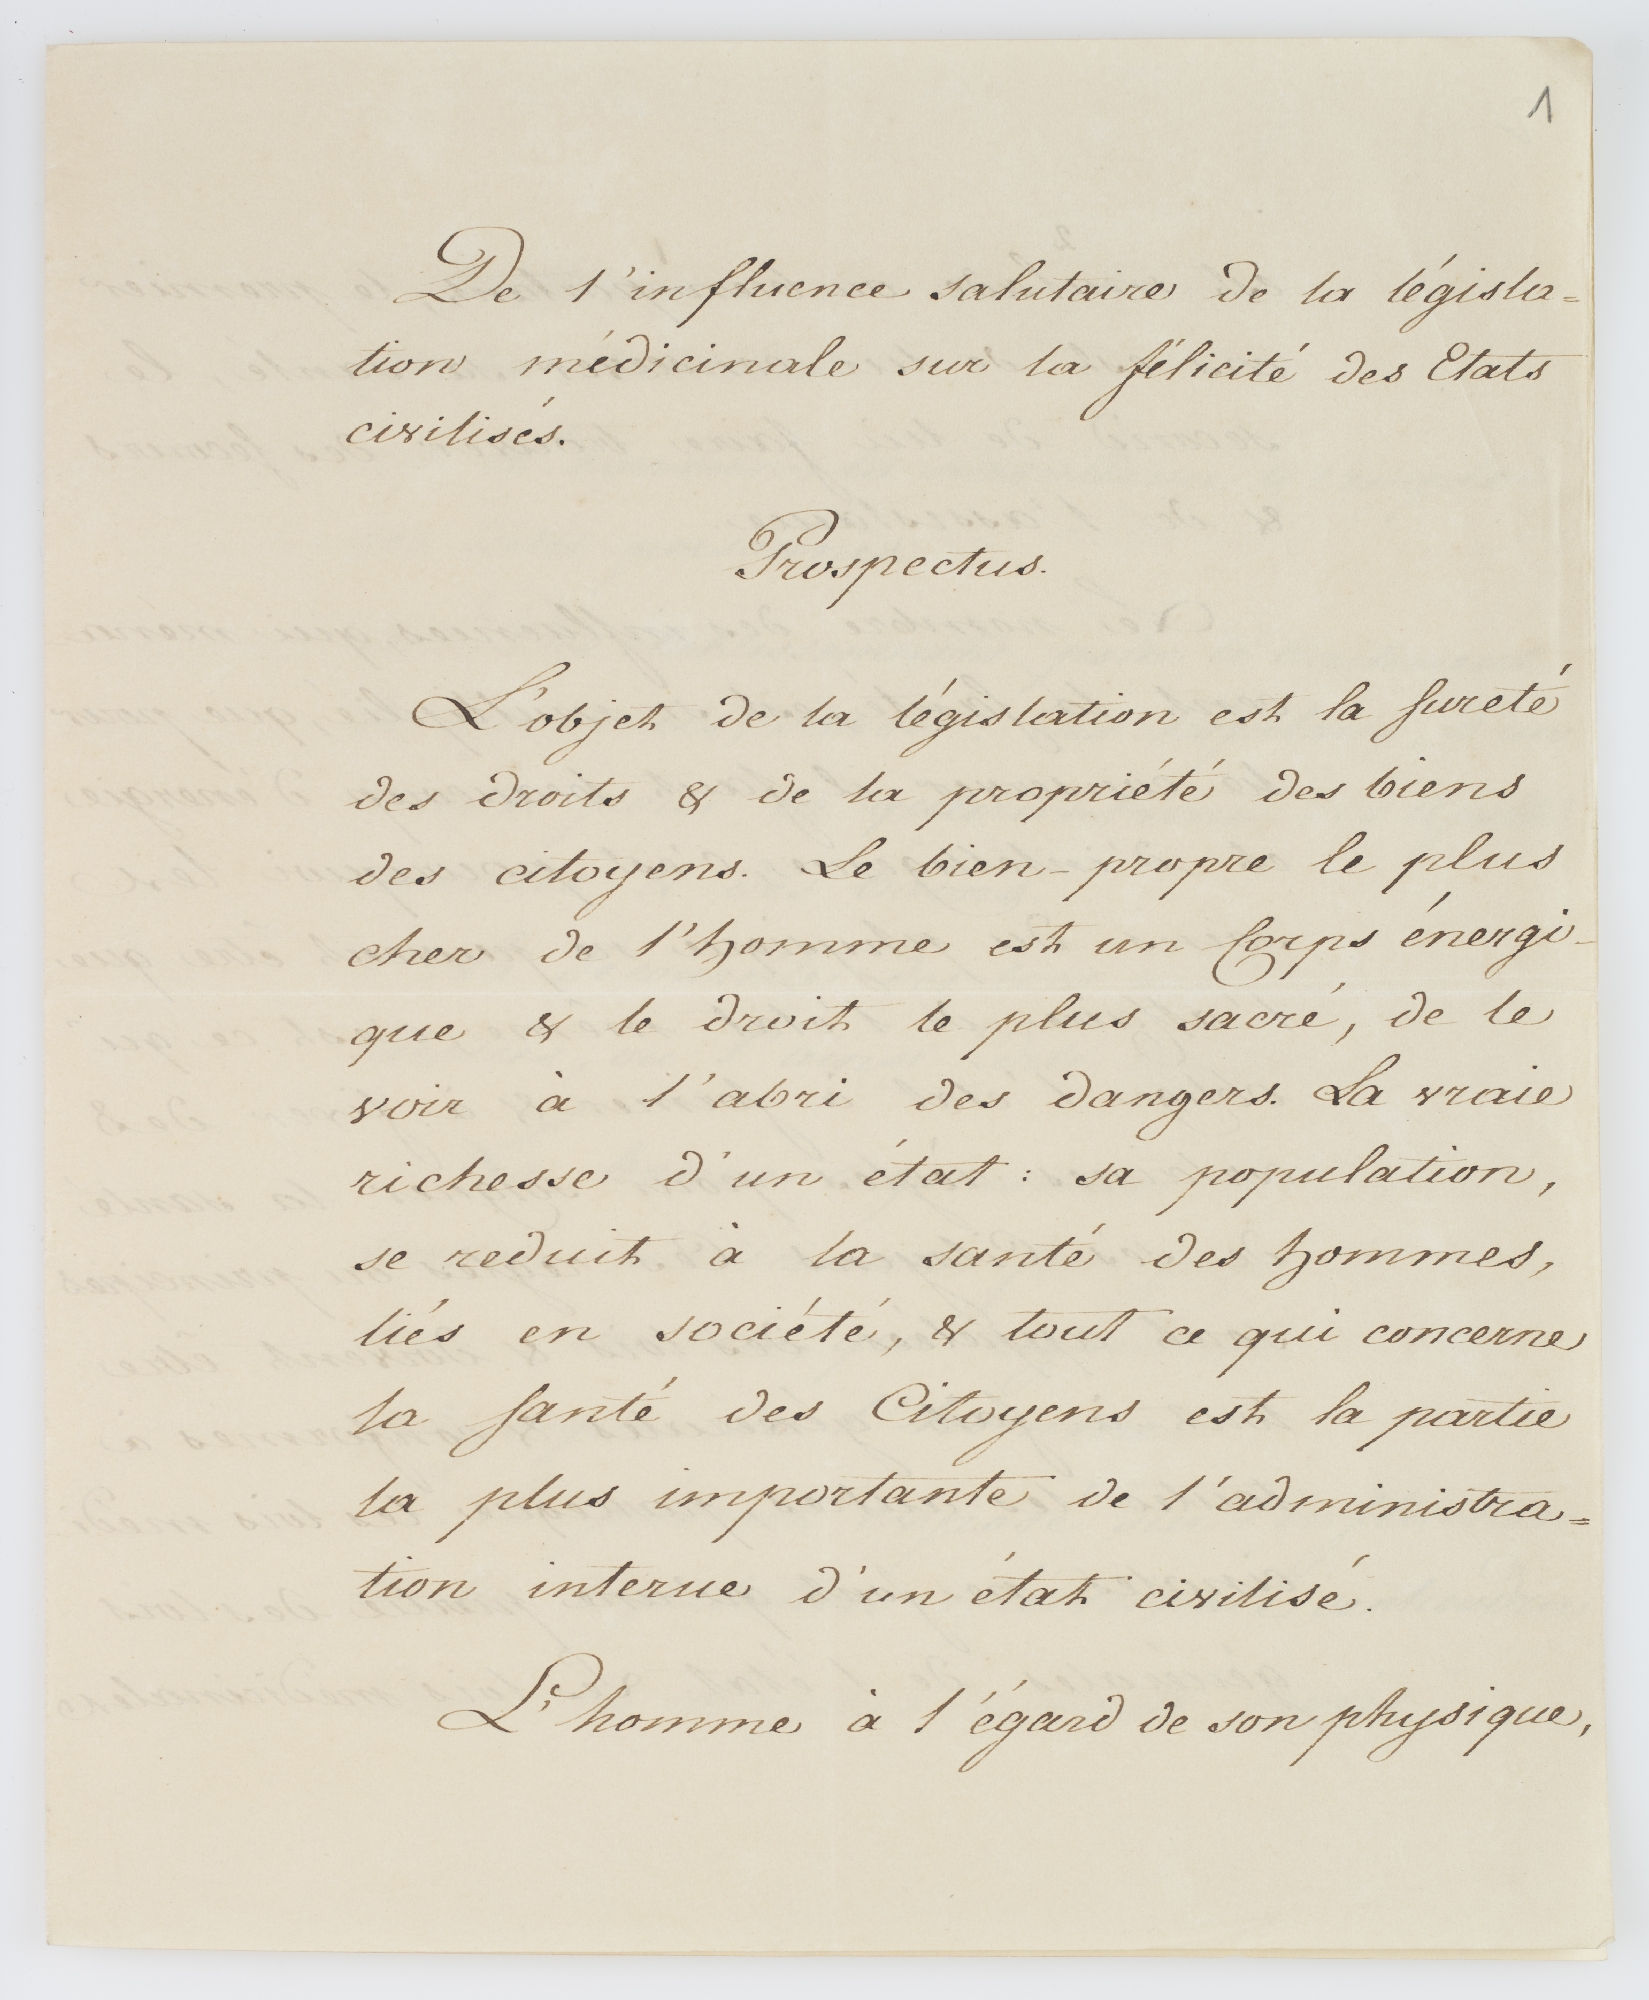 1
De l'influence salutaire de la législa=
tion médicinale sur la félicité des Etats
civilisés.
Prospectus.
L'objet de la législation est la sureté
des droits & de la propriété des biens
des citoyens. Le bien-propre le plus
cher de l'homme est un Corps énergi-
que & le droit le plus sacré, de le
voir à l'abri des dangers. La vraie
richesse d'un état: sa population,
se reduit à la santé des hommes,
liés en société, & tout ce qui concerne
la santé des Citoyens est la partie
la plus importante de l'administra=
tion interne d'un état civilisé.
L'homme à l'égard de son physique,